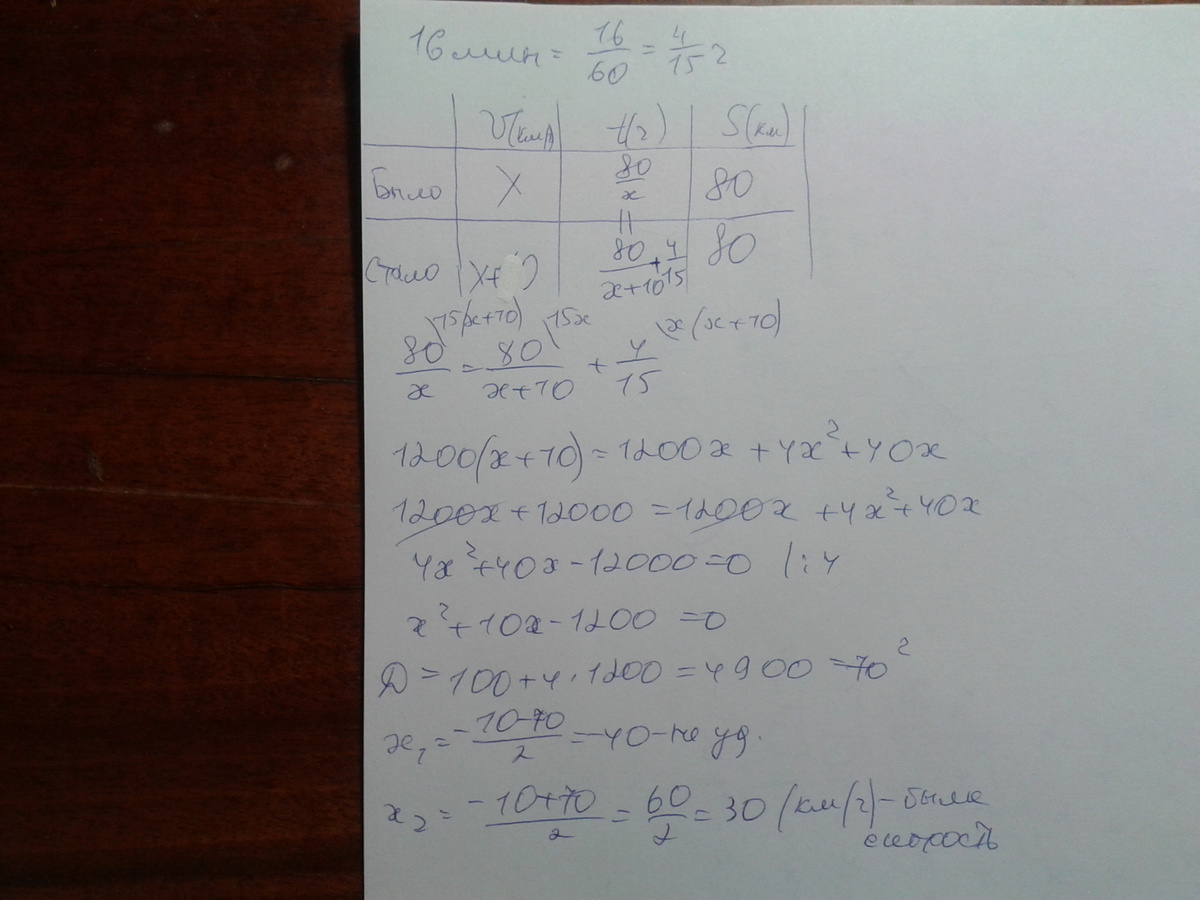 16 мин = 16/60 = 4/15 ч
V(км/ч) t(ч) S(км)
Было X 80/x 80
||
Стало X+ 80/(x+10) + 4/15 80
80/x \15(x+10) = 80/(x+10) \15x + 4/15 \x(x+10)
1200(x+10) = 1200x + 4x² + 40x
1200x + 12000 = 1200x + 4x² + 40x
4x² + 40x - 12000 = 0 |:4
x² + 10x - 1200 = 0
D = 100 + 4 · 1200 = 4900 = 70²
x₁ = (-10-70)/2 = -40 - не уд.
x₂ = (-10+70)/2 = 60/2 = 30 (км/ч) - была
скорость